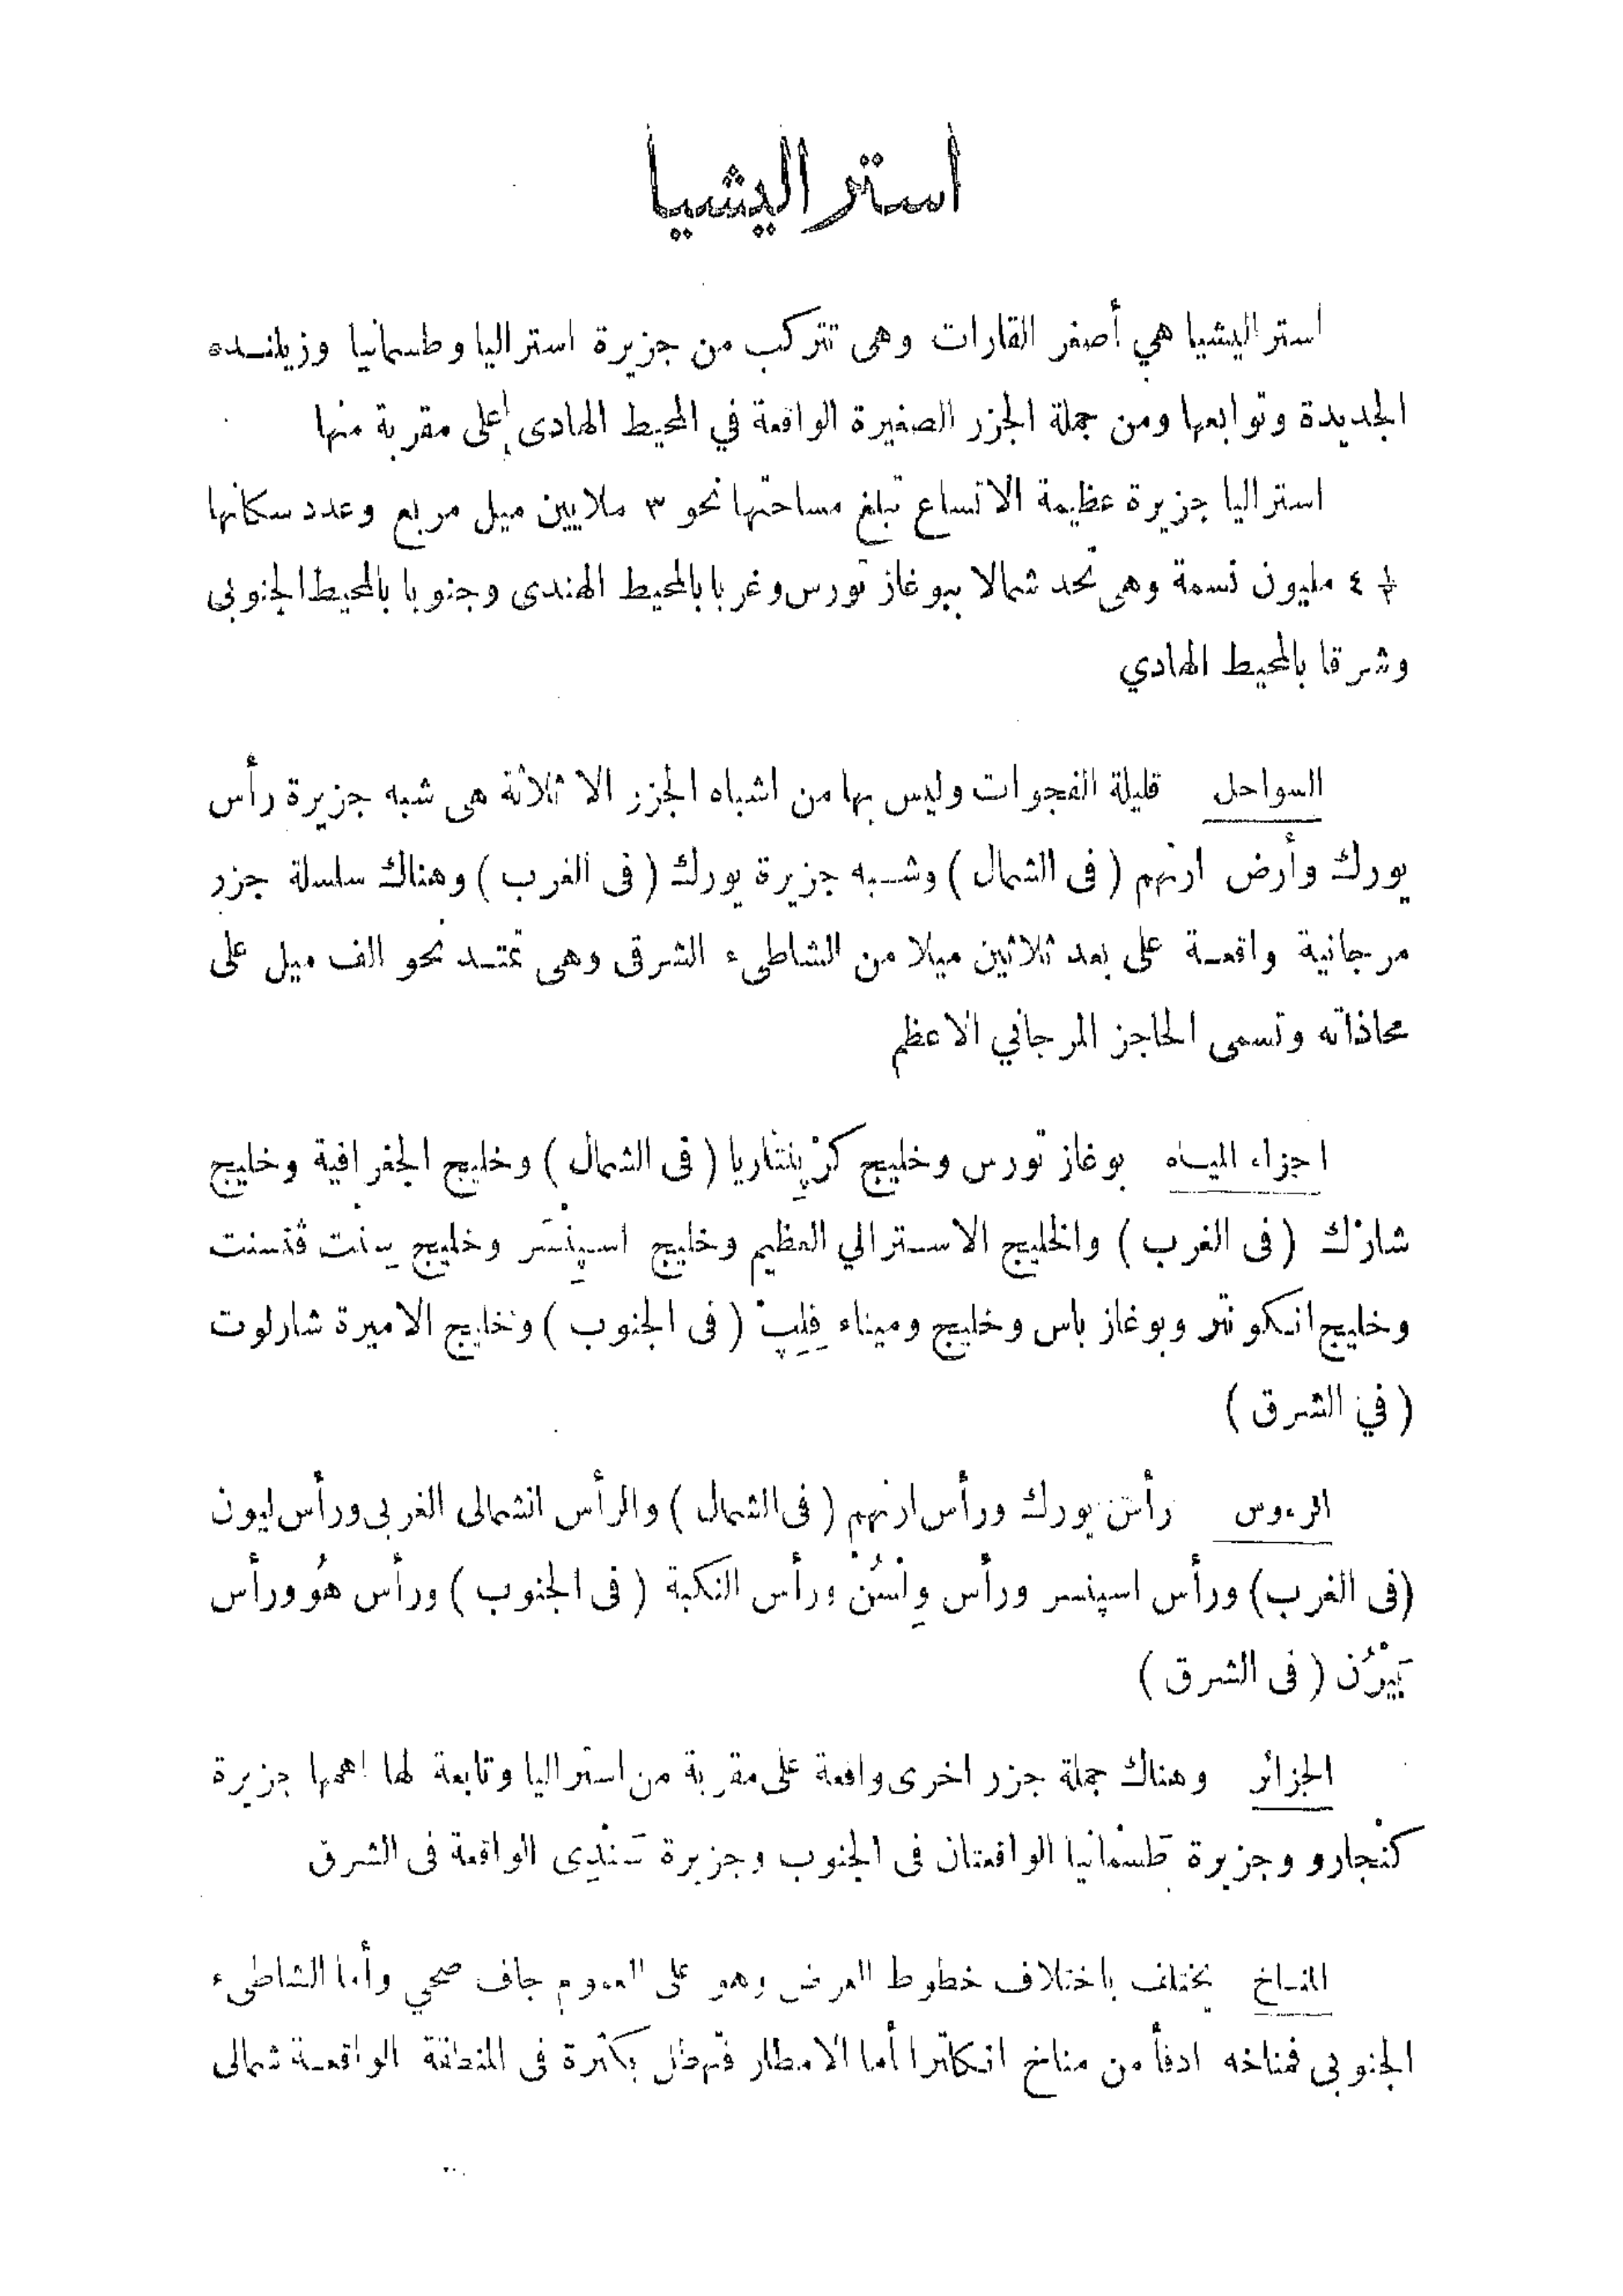 استراليشيا
استراليشيا هي أصغر القارات وهى تتركب من جزيرة استراليا وطسمانيا وزيلنده
الجديدة وتوابعها ومن جملة الجزر الصغيرة الواقعة في المحيط الهادى على مقربة منها
استراليا جزيرة عظيمة الاتساع تبلغ مساحتها نحو ٣ ملايين ميل مربع وعدد سكانها
٤ مليون نسمة وهى تحد شمالا ببوغاز تورس وغربا بالمحيط الهندى وجنوبا بالمحيط الجنوبى
وشرقا بالمحيط الهادي
السواحل قليلة الفجوات وليس بها من اشباه الجزر الا ثلاثة هى شبه جزيرة رأس
يورك وأرض ارنهم (فى الشمال) وشبه جزيرة يورك (فى الغرب) وهناك سلسلة جزر
مرجانية واقعة على بعد ثلاثين ميلا من الشاطىء الشرقى وهى تمتد نحو الف ميل على
محاذاته وتسمى الحاجز المرجاني الاعظم
اجزاء المياه بوغاز تورس وخليج كرْپِنتاريا (فى الشمال) وخليج الجغرافية وخليج
شارك (فى الغرب) والخليج الاسترالي العظيم وخليج اسپِنْسَر وخليج سِنْت ڤنسنت
وخليج انكونتر وبوغاز باس وخليج وميناء فِلِپْ (فى الجنوب) وخليج الاميرة شارلوت
(في الشرق)
الرءوس رأس يورك ورأس ارنهم (فى الشمال) والرأس الشمالى الغربى ورأس ليون
(فى الغرب) ورأس اسپنسر ورأس وِلْسُنْ ورأس النكبة (فى الجنوب) ورأس هُو ورأس
بَيْرُن (فى الشرق)
الجزائر وهناك جملة جزر اخرى واقعة على مقربة من استراليا وتابعة لها اهمها جزيرة
كنْجارو وجزيرة طَسْمانيا الواقعتان فى الجنوب وجزيرة سَنْدِى الواقعة فى الشرق
المناخ يختلف باختلاف خطوط العرض وهو على العموم جاف صحي وأما الشاطىء
الجنوبى فمناخه ادفأ من مناخ انكلترا أما الامطار فتهطل بكثرة فى المنطقة الواقعة شمالى